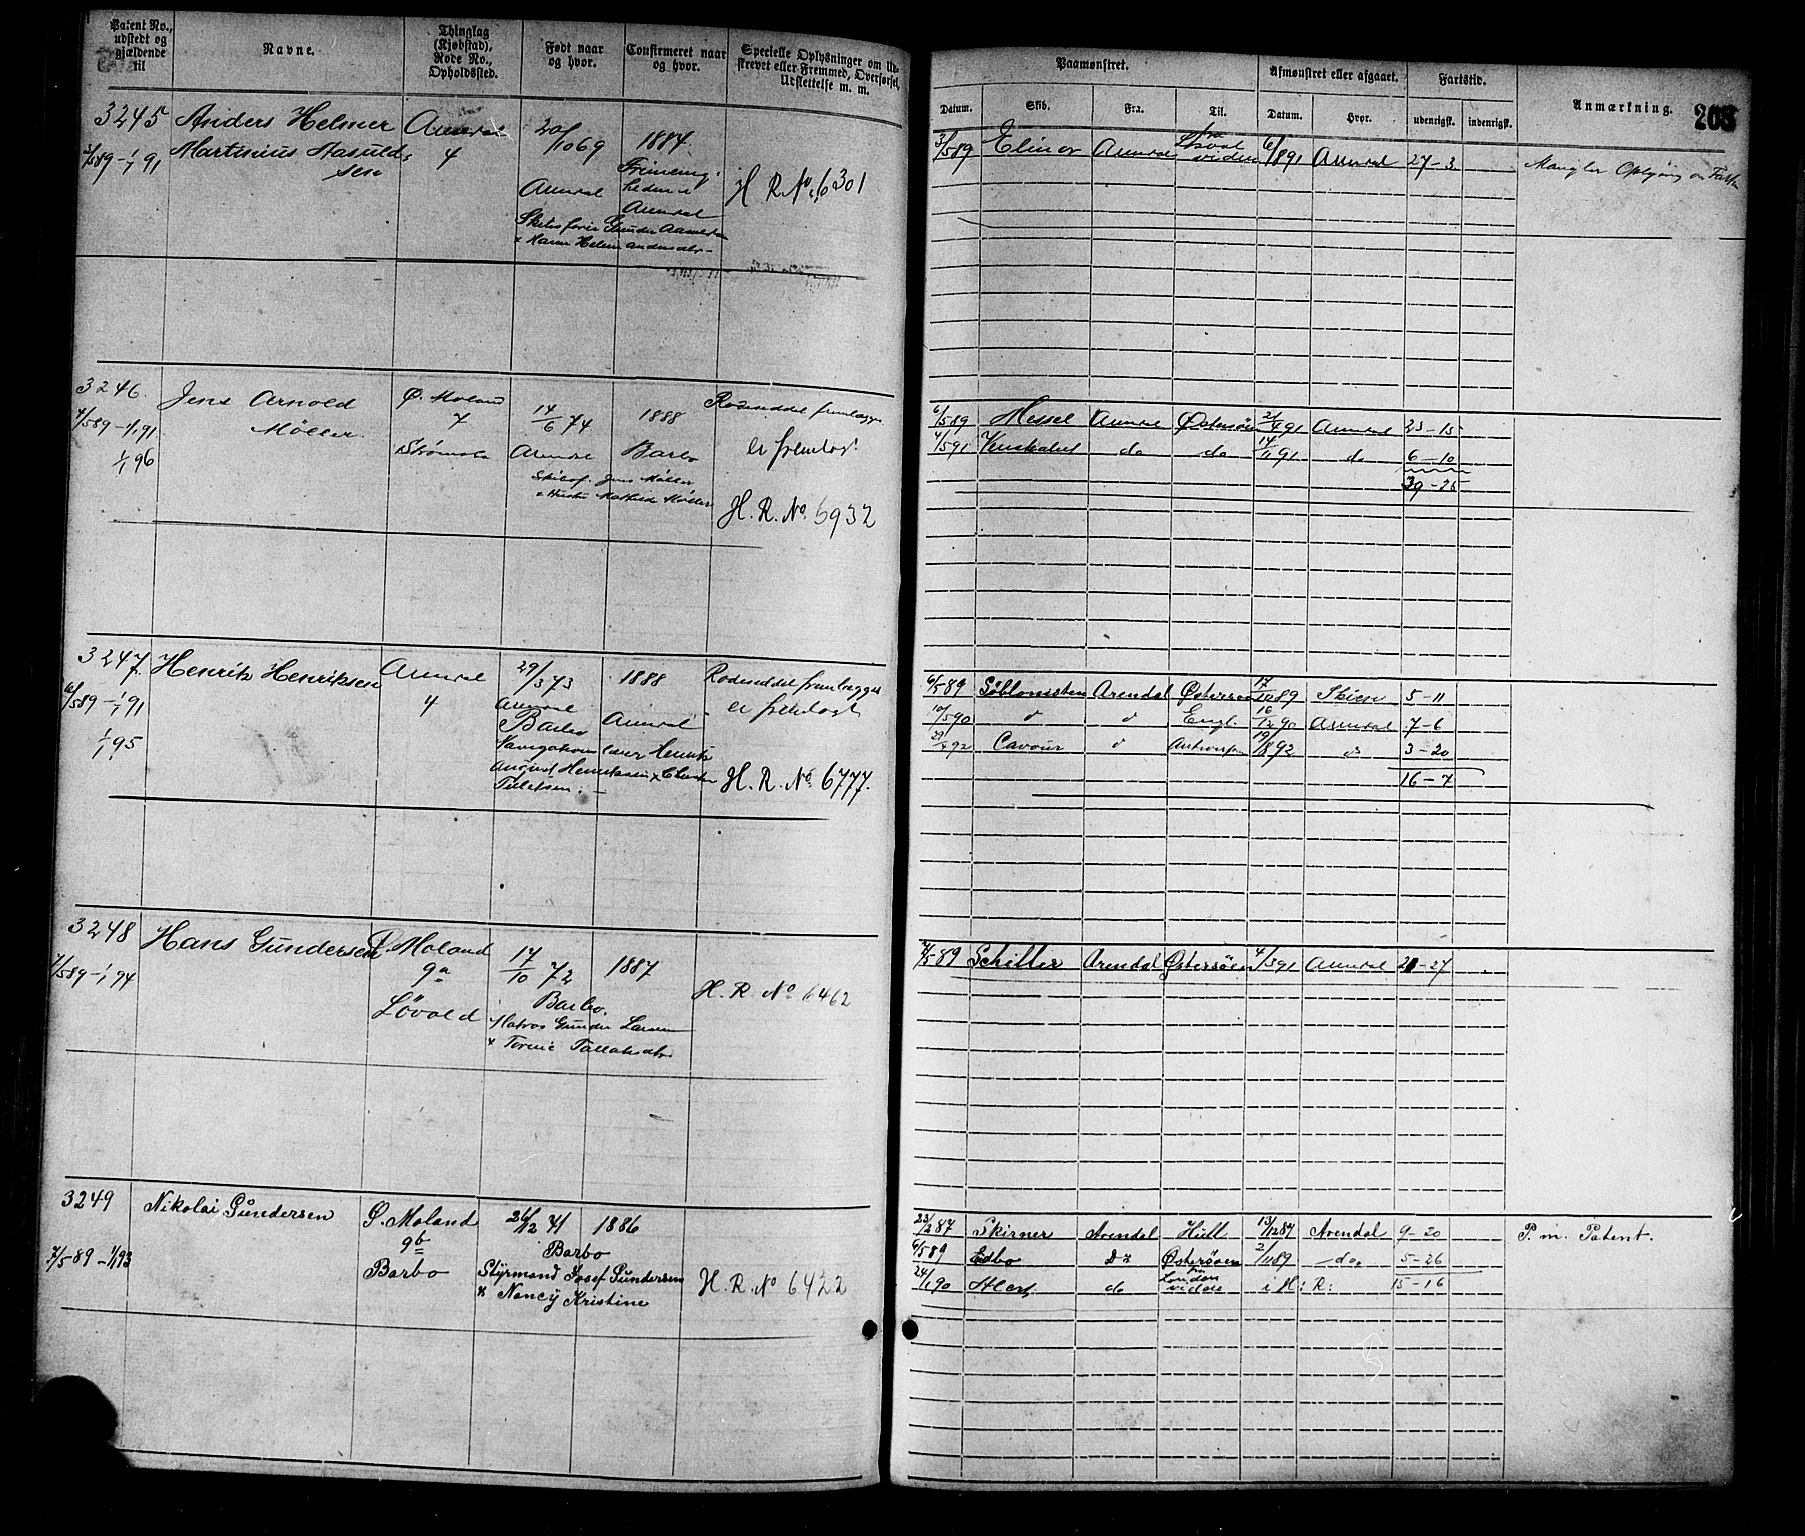 Patent No., udstedt og gjældende til
Navne.
Thinglag (Kjøbstad), Rode No., Opholdssted.
Født naar og hvor.
Confirmeret naar og hvor.
Specielle Oplysninger om Udskrevet eller Fremmed, Overførsel, Udslettelse m. m.
Paamønstret.
Afmønstret eller afgaaet.
Fartstid.
Anmærkning.
203
Datum.
Skib.
Fra.
Til.
Datum.
Hvor.
udenrigsk.
indenrigsk.
3245 Anders Helmer Arendal 20/10 69 1884.
3/5 89 – 1/1 91 Martinius 4
sen
Arendal
Arendal
H. R. No 6301
3/5 89 Elinor Arendal 6/1 91 Arendal 27–3 Mangler
3246. Jens Arnold Ø. Moland 14/6 74 1888
7/5 89 – 1/1 91 Møller. 7
1/1 96 Strømsbo Arendal Barbo er fremlagt.
Jens Møller
Mathilde Møller
H. R. No. 6932
6/5 89 Hessel Arendal Østersöen 2/4 91 Arendal 23–15
4/5 91 do do 14/11 91 do 6–10
39–25
3247. Henrik Henriksen Arendal 29/3 73 1888
6/5 89 – 1/1 91 4 Arendal er fremlagt
1/1 95 Barbo Arendal
Henriksen
H. R. No. 6777.
6/5 89 Söblomsten Arendal 17/10 89 Skien 5–11
10/5 90 d d Engl. 16/12 90 Arendal 7–6
29/4 92 Cavour d Antwerp 19/8 92 d 3–20
16–7
3248 Hans Gundersen Ø. Moland 17/10 72 1887
7/5 89 – 1/1 94 9a
Løvold Barbo. H. R. No 6462
Matros Gunder Larsen
7/5 89 Schiller Arendal Østersöen 4/3 91 Arendal 21–27
3249 Nikolai Gundersen Ø. Moland 26/12 71 1886
9b Barbo
7/5 89 – 1/1 93 Barbo Styrmand Josef Gundersen
& Nancy Kristine
H. R. No 6422
23/2 87 Skirner Arendal Hull 13/12 87 Arendal 9–20 P. m. Patent.
6/5 89 Ebbo Do Østersöen 2/11 89 do 5–26
24/1 90 Alert do London i H: R: 15–16
fra
vidre